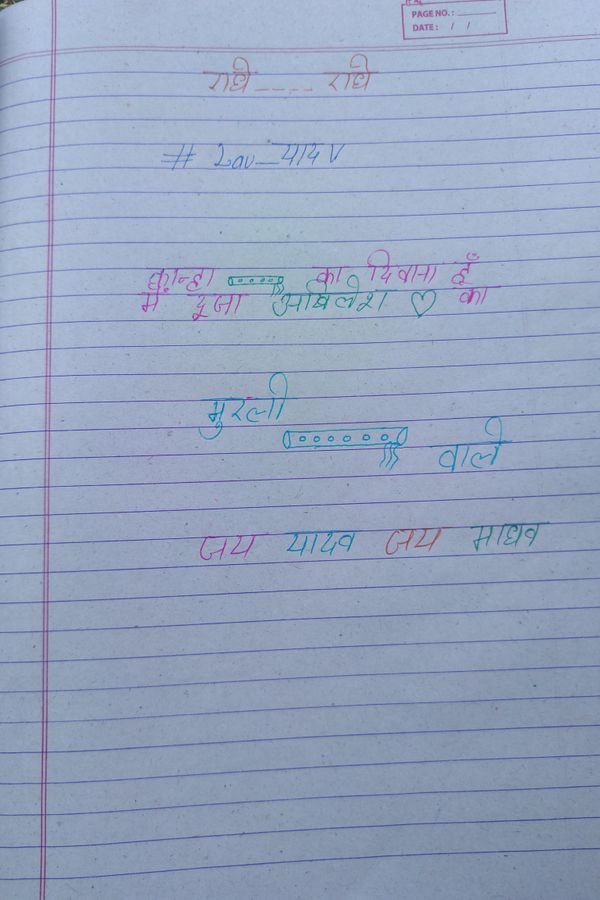 PAGE NO.:
DATE: / /
राधे ---- राधे
# Lav_यादV
कान्हा का दिवाना हूँ
में दूजा अखिलेश ♡ का
मुरली
वाले
जय यादव जय माधव